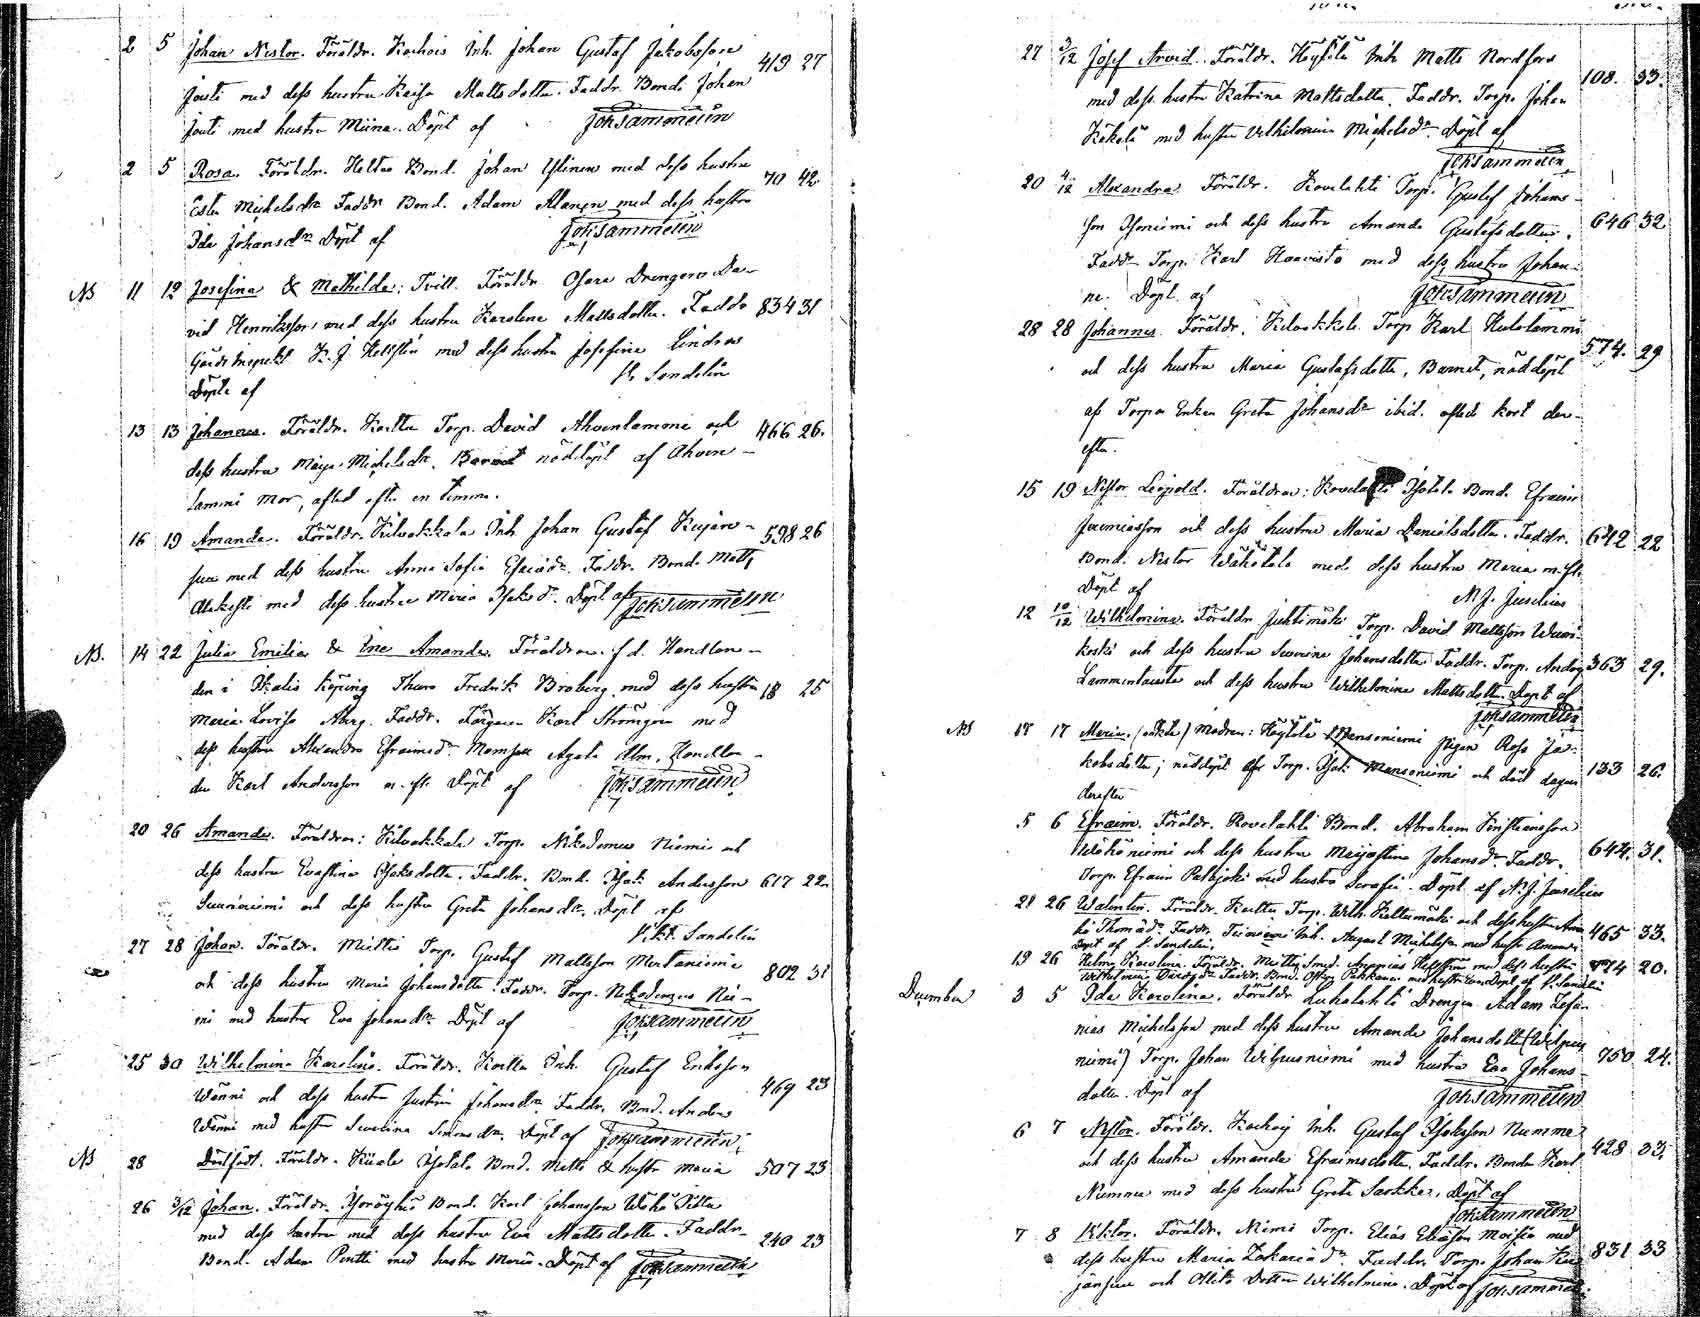 2 5 Johan Nestor. Föräldr. Inh. Johan Gustaf Jakobsson 419 27
med dess hustru Kaisa Mattsdotter. Faddr. Bond. Johan
med hustru Miina. Döpt af Joh Sammelin
2 5 Rosa. Föräldr. Bond. Johan med dess hustru 70 42
Ester Michelsdr Faddr Bond. Adam Alanen med dess hustru
Ida Johansdr Döpt af Joh Sammelin
NB 11 12 Josefina & Mathilda, Tvill. Föräldr. Osara Drengen Da-
vid Henriksson med dess hustru Karolina Mattsdotter. Faddr 834 31
K. J. Hellstén med dess hustru Josefina Lindroos
Döpte af V. Sandelin
13 13 Johannes. Föräldr. Torp. David Ahvenlammi och 466 26.
dess hustru Maija Michelsdr. Barnet nöddöpt af Ahven-
lammi mor, afled efter en timme.
16 19 Amanda. Föräldr. Kilvakkala Inh. Johan Gustaf Kujan- 598 26
suu med dess hustru Anna Sofia Faddr. Bond. Matts
med dess hustru Maria Isaksdr. Döpt af Joh Sammelin
NB. 14 22 Julia Emilia & Ine Amanda. Föräldrar. f.d. Handlan-
den i Ikalis köping Thure Fredrik Broberg med dess hustru 18 25
Maria Lovisa Åberg. Faddr. Färgaren Karl Strömgren med
dess hustru Alexandra Efraimsdr. Mamsell Agata Alm, Handlan-
den Karl Andersson m.fl. Döpt af Joh Sammelin
20 26 Amanda. Föräldrar: Kilvakkala Torp. Nikodemus Niemi och
dess hustru Evastina Isaksdotter. Faddr. Bond. Isak Andersson 617 22
och dess hustru Greta Johansdr. Döpt af
Vikt. Sandelin
27 28 Johan. Föräldr. Miettis Torp. Gustaf Mattsson 802 31
och dess hustru Maria Johansdotter. Faddr. Torp. Nikodemus Nie-
mi med hustru Eva Johansdr. Döpt af Joh Sammelin
25 30 Wilhelmina Karolina. Föräldr. Inh. Gustaf Eriksson
Wänni och dess hustru Justina Johansdr. Faddr. Bond. Anders 469 23
Wänni med hustru Severina Simonsdr. Döpt af Joh Sammelin
NB 28 Dödfödt. Föräldr. Bond. Matts & hustru Maria 507 23
26 3/12 Johan. Föräldr. Bond. Karl Johansson
med dess hustru med dess hustru Eva Mattsdotter. Faddr. 240 23
Bond. Adam Pentti med hustru Maria. Döpt af Joh Sammelin
27 3/12 Josef Arvid. Föräldr. Höytölä Inh. Matts Nordfors 108. 33.
med dess hustru Katrina Mattsdotter. Faddr. Torp. Johan
med hustru Vilhelmina Michelsdr. Döpt af
Joh Sammelin
20 4/12 Alexandra Föräldr. Kovelahti Torp. Gustaf Johans-
son Isoniemi och dess hustru Amanda Gustafsdotter. 646 32
Faddr Torp. Karl Haavisto med dess hustru Johan-
na. Döpt af Joh Sammelin
28 28 Johannes. Föräldr. Kilvakkala Torp Karl 574. 29
och dess hustru Maria Gustafsdotter, Barnet, nöddöpt
af Torpar Enkan Greta Johansdr ibid. afled kort der-
efter.
15 19 Nestor Leopold. Föräldrar: Kovelahti Bond. Efraim
Jeremiasson och dess hustru Maria Danielsdotter. Faddr. 642 22
Bond. Nestor Wähätalo med dess hustru Maria m.fl.
Döpt af N. J. Juselius
12 10/12 Wilhelmina. Föräldr Juhtimäki Torp. David Mattsson
koski och dess hustru Severina Johansdotter. Faddr. Torp. Anders 363 29.
och dess hustru Wilhelmina Mattsdotter. Döpt af
Joh Sammelin
NB 17 17 Maria. (oäkta) Modren: Höytölä Mansoniemi pigan Rosa Ja-
kobsdotter; nöddöpt af Torp. Isak Mansoniemi och död dagen 133 26.
derefter
5 6 Efraim. Föräldr. Kovelahti Bond. Abraham Kristiansson
Wähäniemi och dess hustru Maijastina Johansdr Faddr. 644. 31.
Torp. Efraim Palojoki med hustru Serafia. Döpt af N. J. Juselius
21 26 Valentin. Föräldr. Torp. Wilh. Kalliomäki och dess hustru Anna 465 33.
Thomasdr. Faddr. Inh. August Michelsson med hustr Amanda
Döpt af V. Sandelin.
19 26 Helma Karolina. Föräldr. Miettis Smed. Ananias Hellström med dess hustru 774 20.
Wilhelmina Davidsdr Faddr. Bond. Oskar med hustr Eva Döpt af V. Sandelin
December 3 5 Ida Karolina. Föräldr Luhalahti Drengen Adam Zefa-
nias Michelsson med dess hustru Amanda Johansdotter (Wilpus
niemi) Torp. Johan Wilpusniemi med hustru Eva Johans- 750 24.
dotter. Döpt af Joh Sammelin
6 7 Nestor. Föräldr. Inh. Gustaf Isaksson Numme 428 33.
och dess hustru Amanda Efraimsdotter. Faddr. Bonden Karl
Numme med dess hustru Greta Saskka. Döpt af
Joh Sammelin
7 8 Viktor. Föräldr. Niemi Torp. Elias Eliasson Moisio med
dess hustru Maria Zakariasdr. Faddr. Torp. Johan Ku- 831 33
jansuu och Dotter Wilhelmina. Döpt af Joh Sammelin